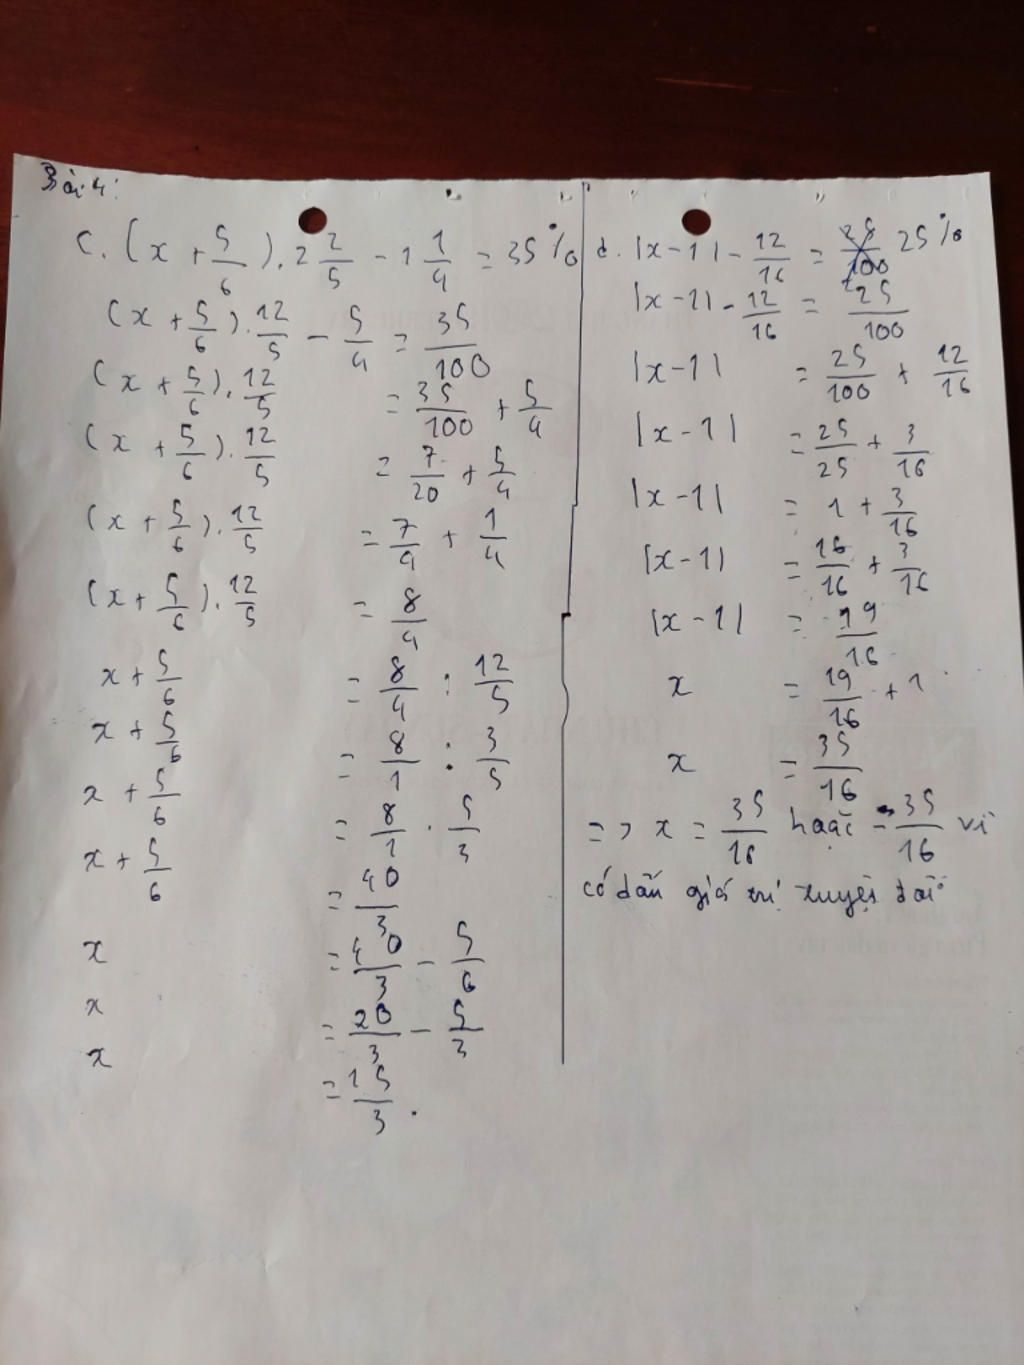 Bài 4:
c. (x + 5/6) . 2 2/5 - 1 1/4 = 35%
(x + 5/6) . 12/5 - 5/4 = 35/100
(x + 5/6) . 12/5 = 35/100 + 5/4
(x + 5/6) . 12/5 = 7/20 + 5/4
(x + 5/6) . 12/5 = 7/4 + 1/4
(x + 5/6) . 12/5 = 8/4
x + 5/6 = 8/4 : 12/5
x + 5/6 = 8/1 : 3/5
x + 5/6 = 8/1 . 5/3
x + 5/6 = 40/3
x = 40/3 - 5/6
x = 20/3 - 5/3
x = 15/3 .
d. |x - 1| - 12/16 = 25%
|x - 1| - 12/16 = 25/100
|x - 1| = 25/100 + 12/16
|x - 1| = 25/25 + 3/16
|x - 1| = 1 + 3/16
|x - 1| = 16/16 + 3/16
|x - 1| = 19/16
x = 19/16 + 1
x = 35/16
=> x = 35/16 hoặc - 35/16 vì
có dấu giá trị tuyệt đối